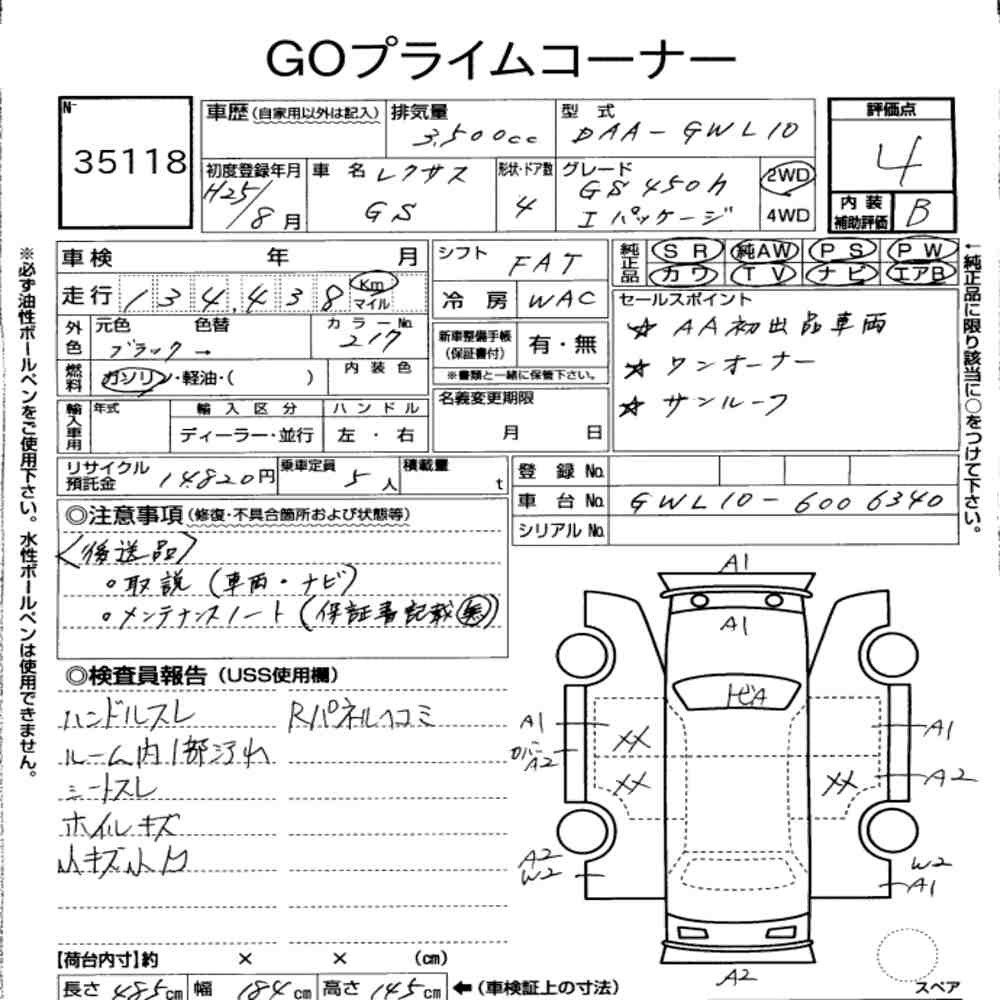 GOプライムコーナー
N-
35118
車歴(自家用以外は記入)
排気量
3,500cc
型 式
DAA-GWL10
評価点
4
初度登録年月
H25/8月
車 名 レクサス
GS
形状・ドア数
4
グレード
GS450h
Iパッケージ
2WD
4WD
内装
補助評価
B
※必ず油性ボールペンをご使用下さい。水性ボールペンは使用できません。
車検 年 月
走行 134,438 Km
マイル
シフト
FAT
冷 房 WAC
純正品
SR 純AW PS PW
カワ TV ナビ エアB
←純正品に限り該当に○をつけて下さい。
外色
元色 色替
ブラック→
カラーNo.
217
燃料
ガソリン・軽油・( )
内装色
新車整備手帳
(保証書付)
有・無
※書類と一緒に保管下さい。
セールスポイント
☆ AA初出品車両
☆ ワンオーナー
☆ サンルーフ
輸入車用
年式
輸入区分
ディーラー・並行
ハンドル
左・右
名義変更期限
月 日
リサイクル
預託金
14820円
乗車定員
5人
積載量
t
登 録 No.
車 台 No. GWL10-6006340
シリアル No.
◎注意事項(修復・不具合箇所および状態等)
<後送品>
○取説(車両・ナビ)
○メンテナンスノート(保証書記載無)
◎検査員報告(USS使用欄)
ハンドルスレ
Rパネルヘコミ
ルーム内1部汚れ
シートスレ
ホイルキズ
小キズ小凹
A1
A1
トビA
A1
カバー
A2
XX
XX
XX
A1
A2
A2
W2
W2
A1
A2
スペア
【荷台内寸】約 × × (cm)
長さ 485cm 幅 184cm 高さ 145cm ←(車検証上の寸法)